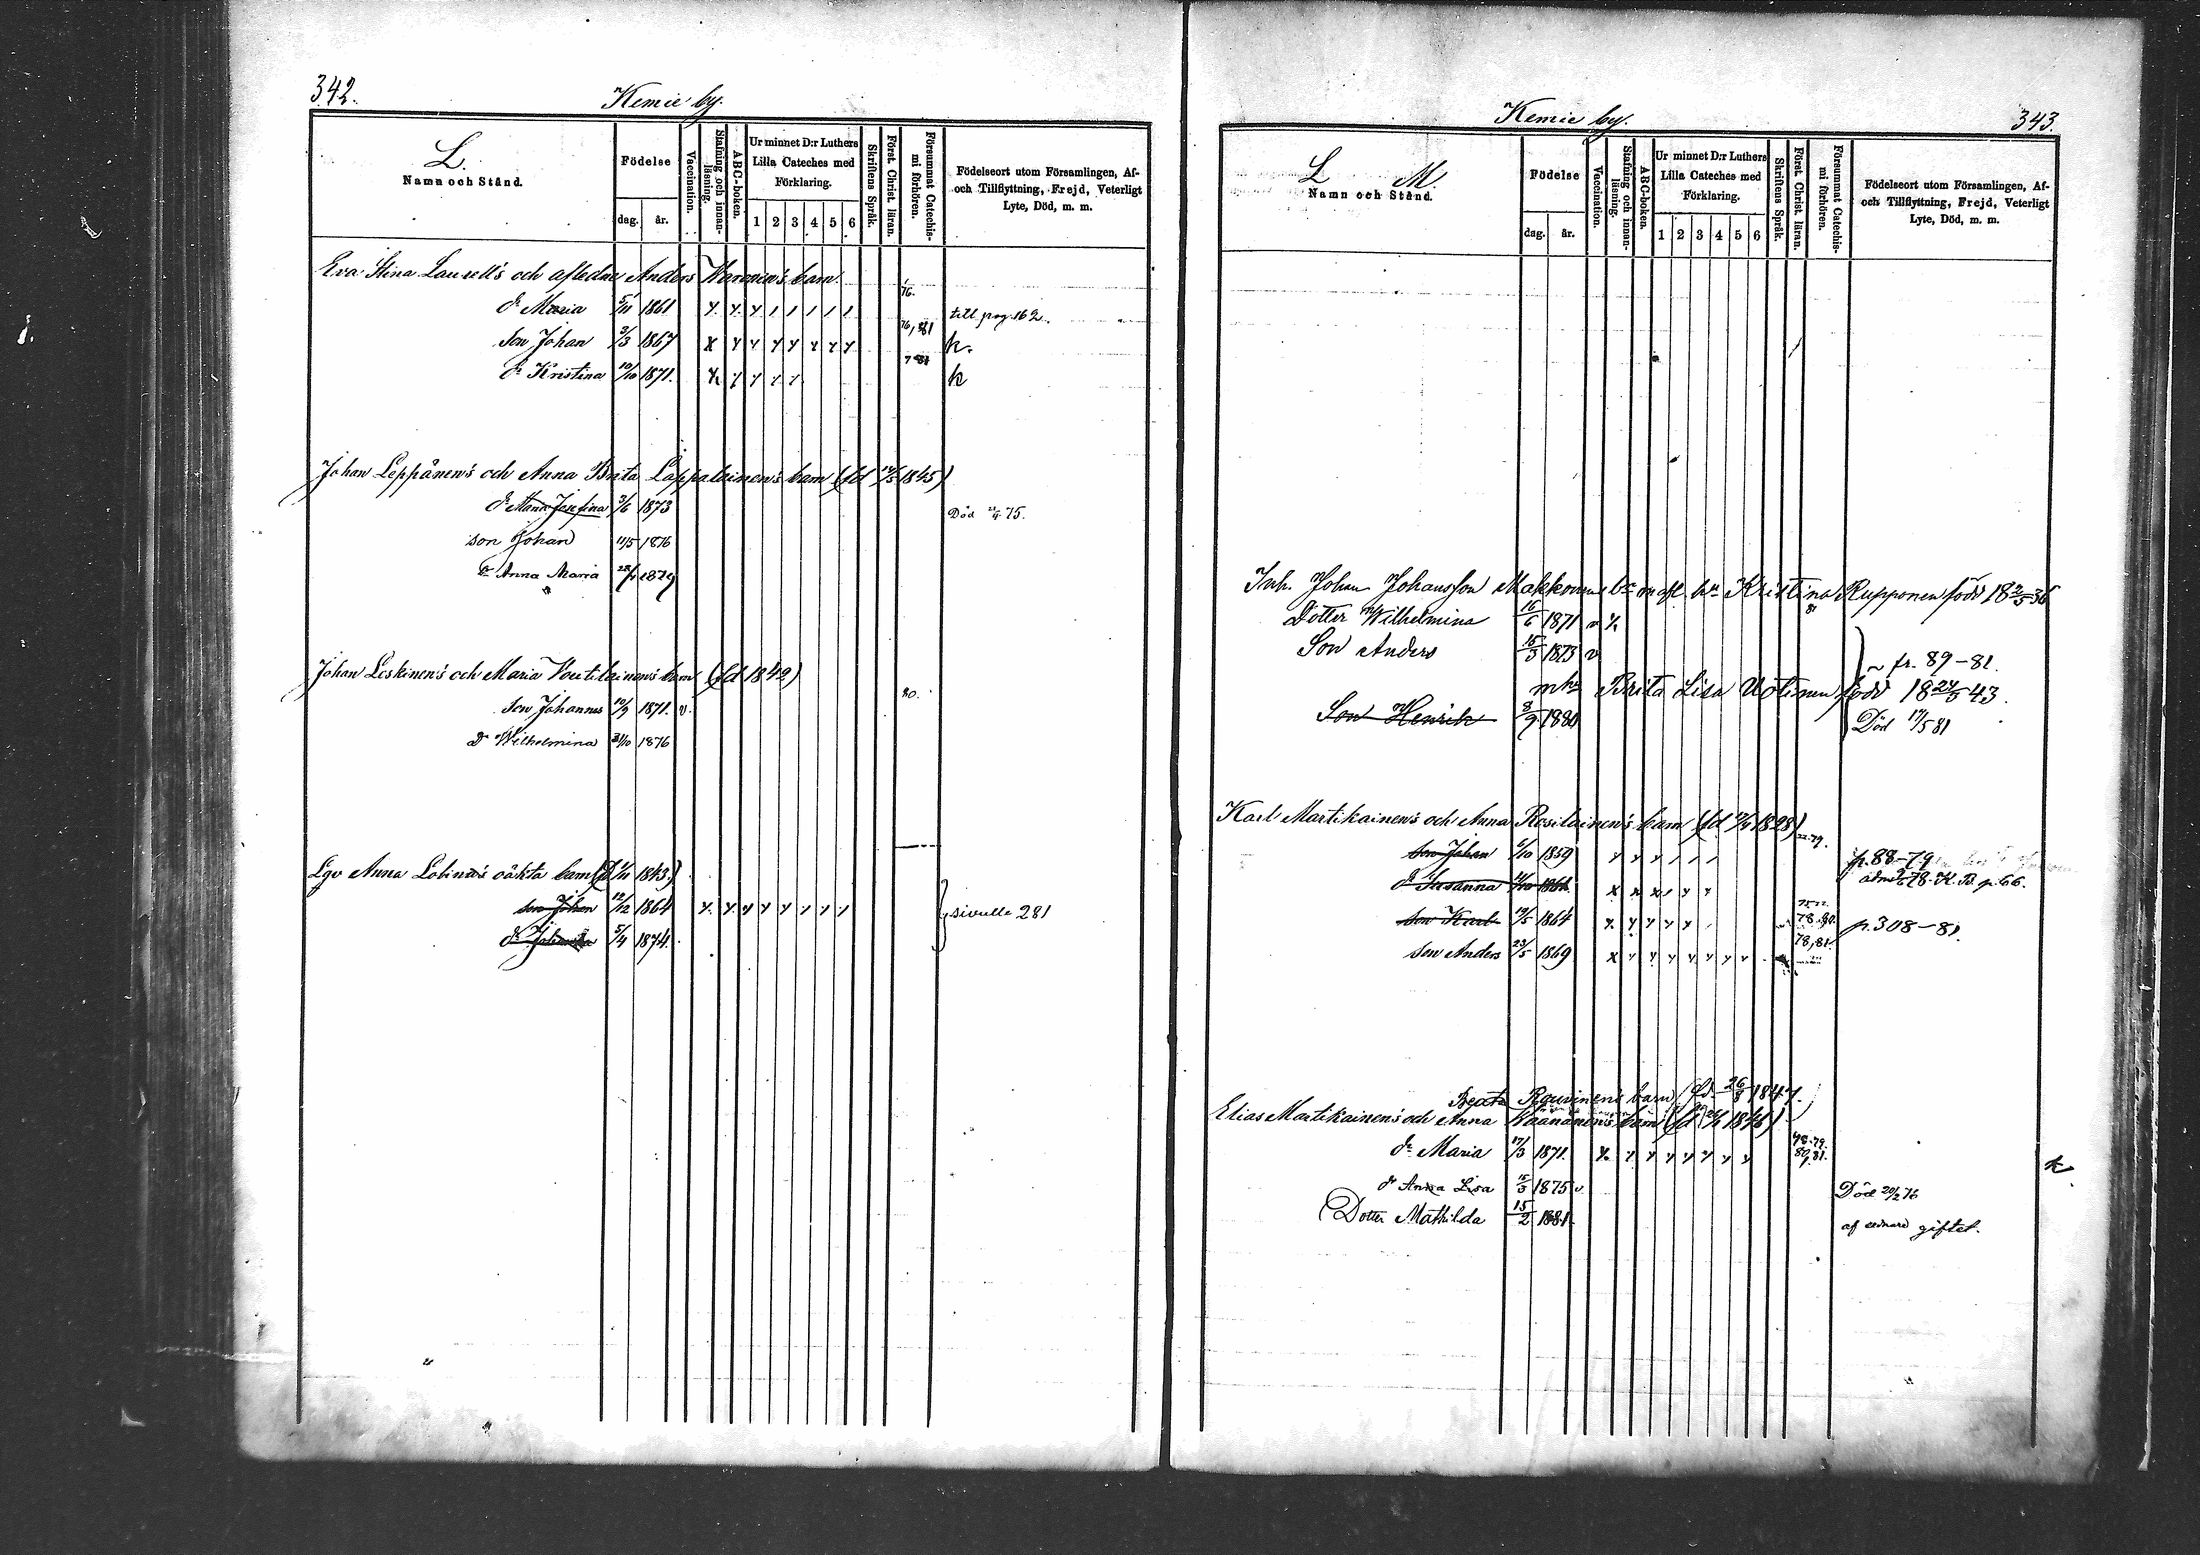 342.
Kemie by.
L.
Namn och Stånd.
Födelse
dag. år.
Vaccination.
Stafning och innanläsning.
ABC-boken.
Ur minnet D:r Luthers Lilla Cateches med Förklaring.
1 2 3 4 5 6
Skriftens Språk.
Först. Christ. läran.
Försummat Catechismi förhören.
Födelseort utom Församlingen, Af- och Tillflyttning, Frejd, Veterligt Lyte, Död, m. m.
Eva Stina Laurell's och afledne Anders barn
76.
dr Maria 5/11 1861 till pag. 162.
76, 81
Son Johan 3/3 1867 k.
dr Kristina 10/10 1871. k
Johan Leppänen's och Anna Brita Lappalainen's barn (fd 12/5 1845)
dr Maria Josefina 3/6 1873 Död 75.
son Johan 11/5 1876
dr Anna Maria 1879
Johan Leskinen's och Maria Voutilainen's barn (fd 1842)
80.
Son Johannes 10/9 1871. v.
dr Wilhelmina 31/10 1876
Lgv Anna oäkta barn (fd 1/11 1843.)
son Johan 12/12 1864 sivulle 281
dr 5/4 1874.
Kemie by.
343.
L M.
Namn och Stånd.
Födelse
dag. år.
Vaccination.
Stafning och innanläsning.
ABC-boken.
Ur minnet D:r Luthers Lilla Cateches med Förklaring.
1 2 3 4 5 6
Skriftens Språk.
Först. Christ. läran.
Försummat Catechismi förhören.
Födelseort utom Församlingen, Af- och Tillflyttning, Frejd, Veterligt Lyte, Död, m. m.
Inh. Johan Johansson Makkonens Kristina Rupponen född 18 2/5 36
81
Dotter Wilhelmina 16/6 1871 v
Son Anders 15/3 1873 v
fr. 89-81.
mhu Brita Lisa Uotinen född 18 24/5 43.
Son Henrik 8/9 1880 Död 17/5 81
Karl Martikainen's och Anna Rosilainen's barn (fd 1828)
79.
son Johan 6/10 1859 p. 88-79
dr Susanna 78. K. B. p. 66.
son Karl 19/5 1864 78.80. p. 308-81.
78,81.
son Anders 23/5 1869
Beata Rouvinen's barn fd. 26/8 1847.
Elias Martikainen's och Anna Väänänen's barn (fd 1846)
78-79.
80,81.
dr Maria 17/3 1871. k
dr Anna Lisa 15/3 1875 v. Död 20/2 76
Dotter Mathilda 15/2 1881. af sednare giftet.